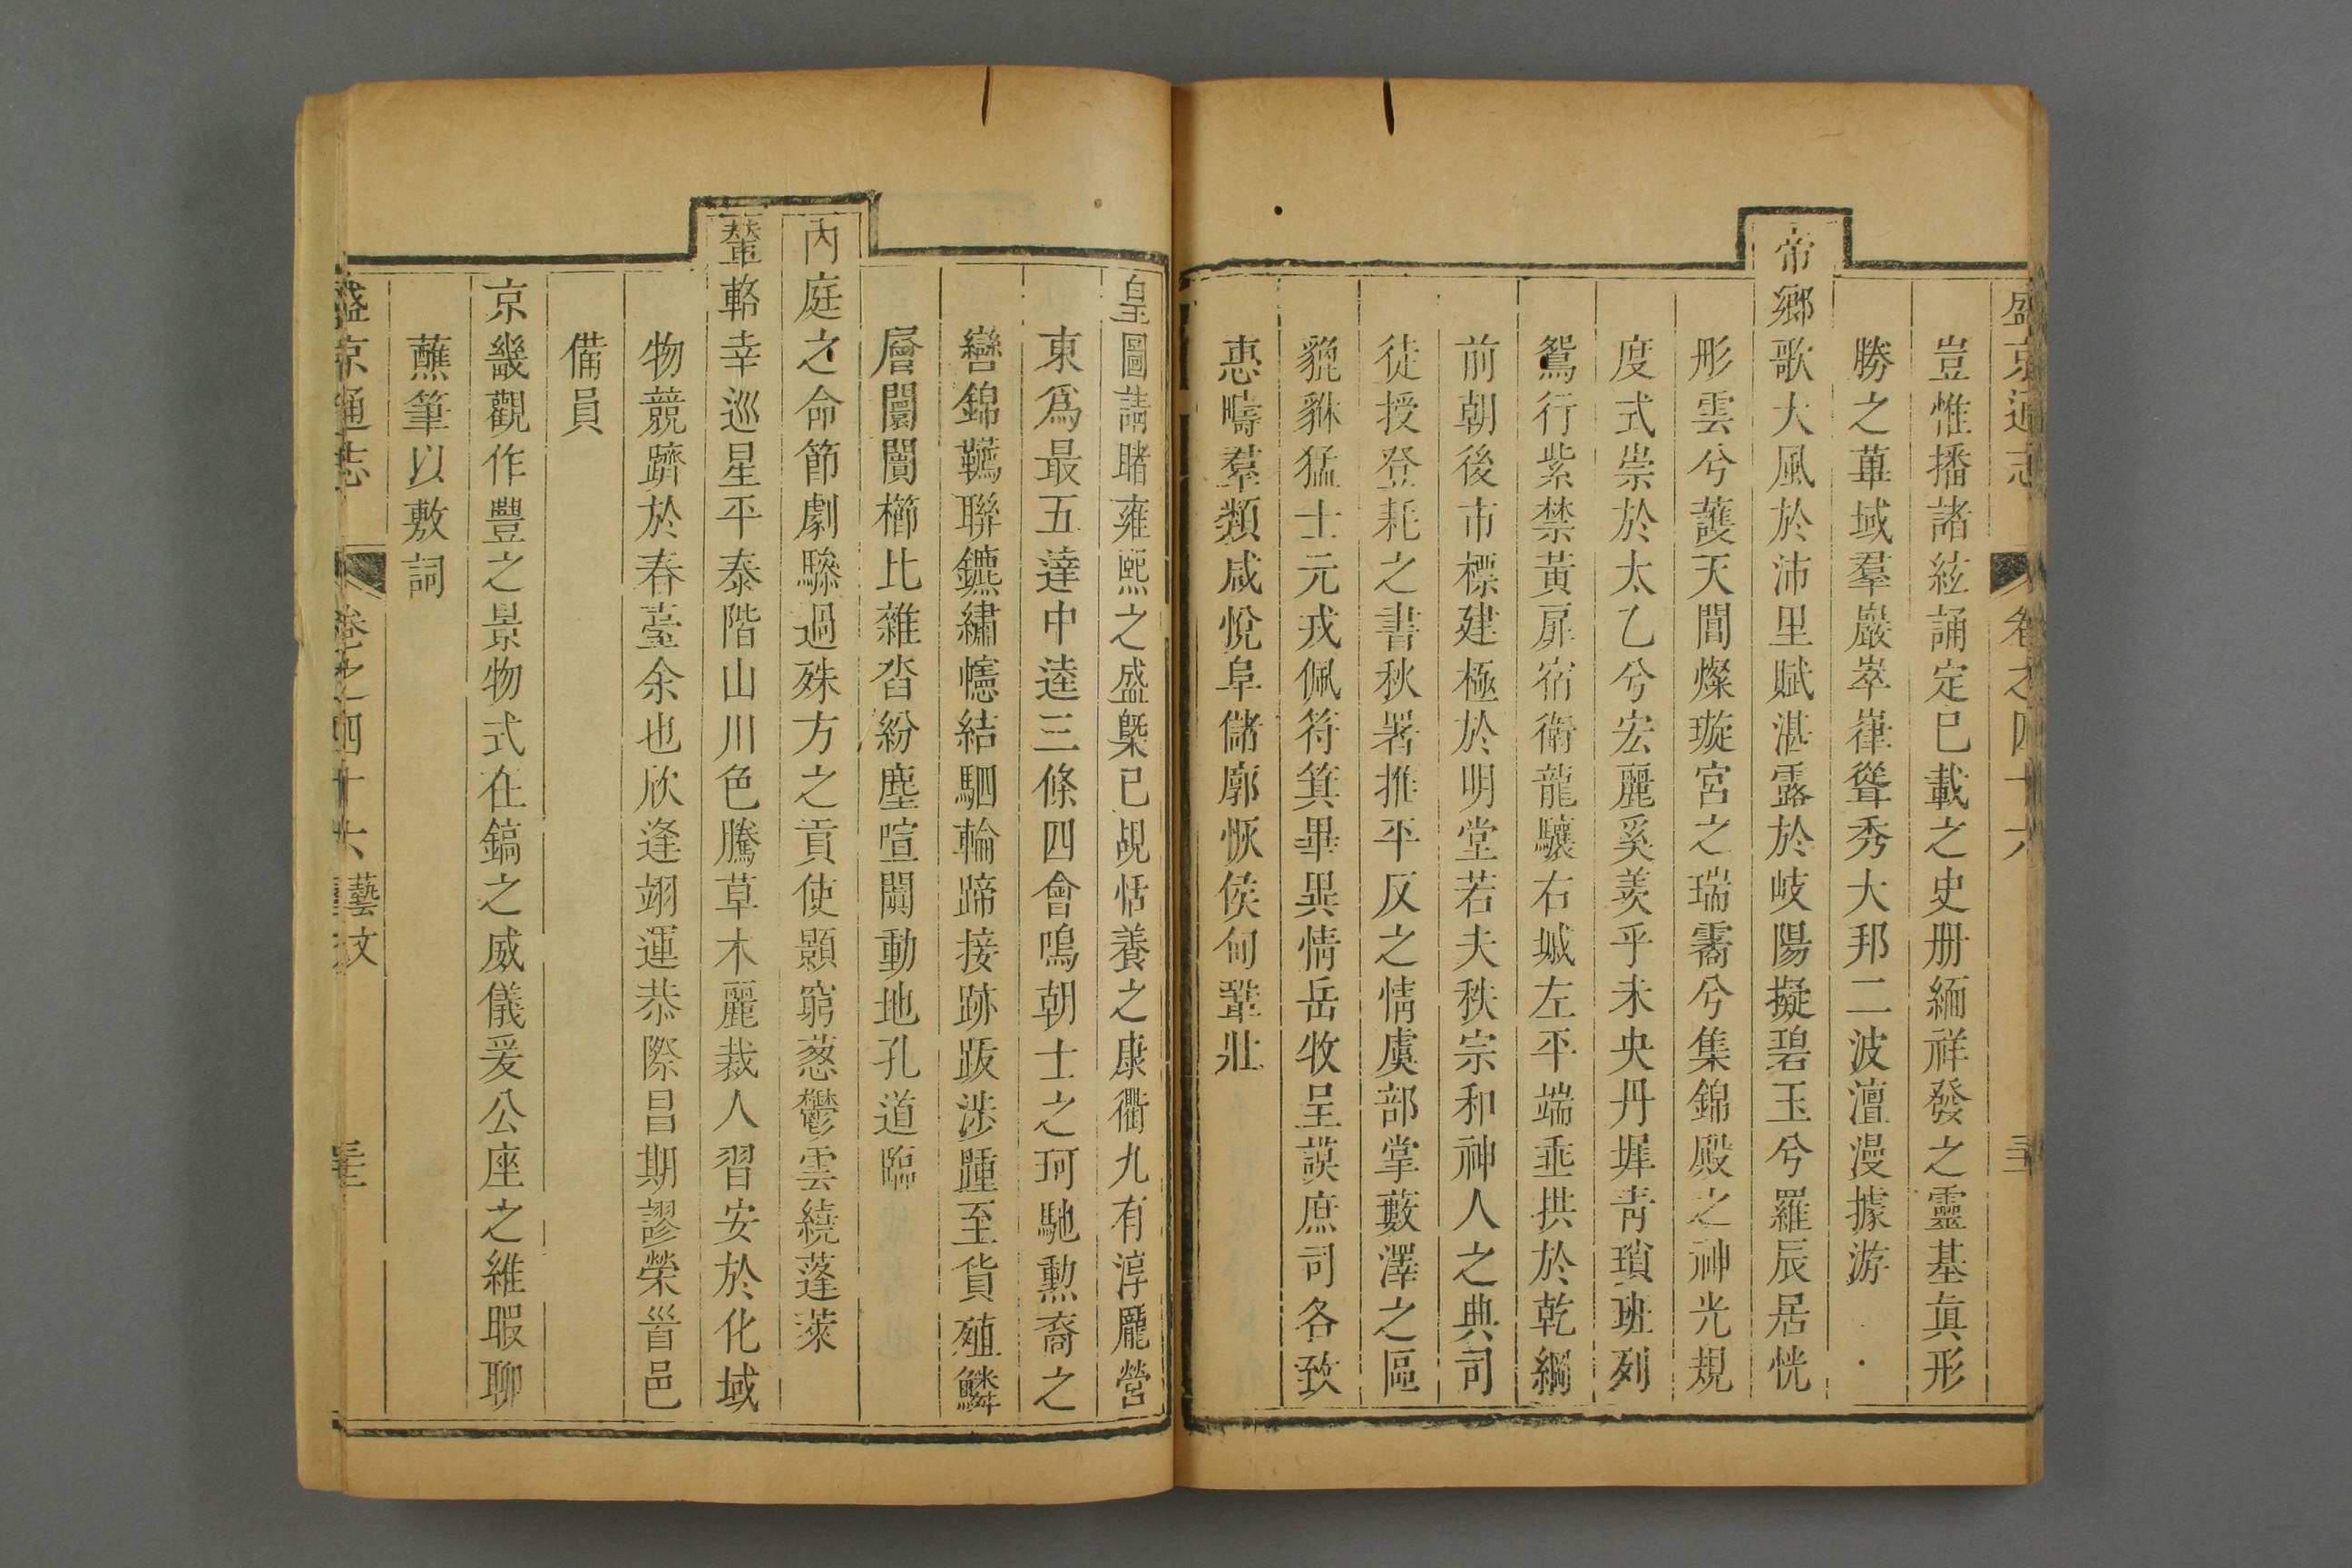 盛京通志 卷之四十六
豈惟播諸絃誦定已載之史册緬祥發之靈基眞形
勝之葺域羣巖崒嵂聳秀大邦二波澶漫據游
帝鄉歌大風於沛里賦湛露於岐陽擬碧玉兮羅辰居恍
彤雲兮護天閶燦璇宮之瑞靄兮集錦殿之神光規
度式崇於太乙兮宏麗奚羨乎未央丹墀靑瑣班列
鴛行紫禁黃扉宿衛龍驤右墄左平端垂拱於乾綱
前朝後市標建極於明堂若夫秩宗和神人之典司
徒授登耗之書秋署推平反之情虞部掌藪澤之區
貔貅猛士元戎佩符箕畢異情岳牧呈謨庶司各致
惠疇羣類咸悅阜儲廓恢侯甸鞏壯
皇圖請睹雍熙之盛槩已覘恬養之康衢九有淳龐營
東爲最五達中逵三條四會鳴朝士之珂馳勲裔之
轡錦韉聯鑣繡幰結駟輪蹄接跡跋涉踵至貨殖鱗
層闤闠櫛比雜沓紛塵喧闐動地孔道臨
內庭之命節劇驂過殊方之貢使顥窮葱鬱雲繞蓬萊
輦輅幸巡星平泰階山川色騰草木麗裁人習安於化域
物競躋於春臺余也欣逢翊運恭際昌期謬榮首邑
備員
京畿觀作豐之景物式在鎬之威儀爰公座之維暇聊
蘸筆以敷詞
盛京通志 卷之四十六 藝文